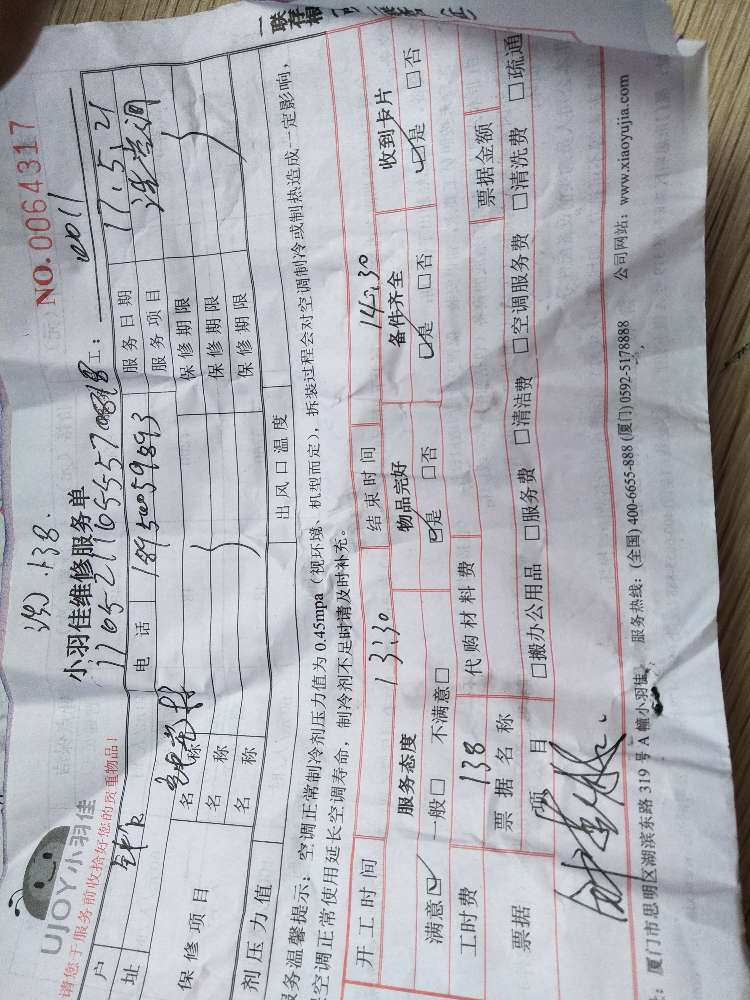 NO.0064317
138.
小羽佳维修服务单
UJOY小羽佳
请您于服务前收拾好您的贵重物品!
工:
户
电话 18950059893 服务日期 17.5.21
址 服务项目 洗空调
保修项目 名称 保修期限
名称 保修期限
名称 保修期限
剂压力值 出风口温度
服务温馨提示:空调正常制冷剂压力值为0.45mpa(视环境、机型而定),拆装过程会对空调制冷或制热造成一定影响,
空调正常使用延长空调寿命,制冷剂不足时请及时补充。
开工时间 13:30 结束时间 14:30
服务态度 物品完好 备件齐全 收到卡片
满意☑ 一般□ 不满意□ ☑是 □否 ☑是 □否 ☑是 □否
工时费 138 代购材料费
票据 票据名称 票据金额
项目 □搬办公用品 □服务费 □清洁费 □空调服务费 □清洗费 □疏通
厦门市思明区湖滨东路319号A幢小羽佳 服务热线:(全国)400-6655-888(厦门)0592-5178888 公司网站:www.xiaoyujia.com